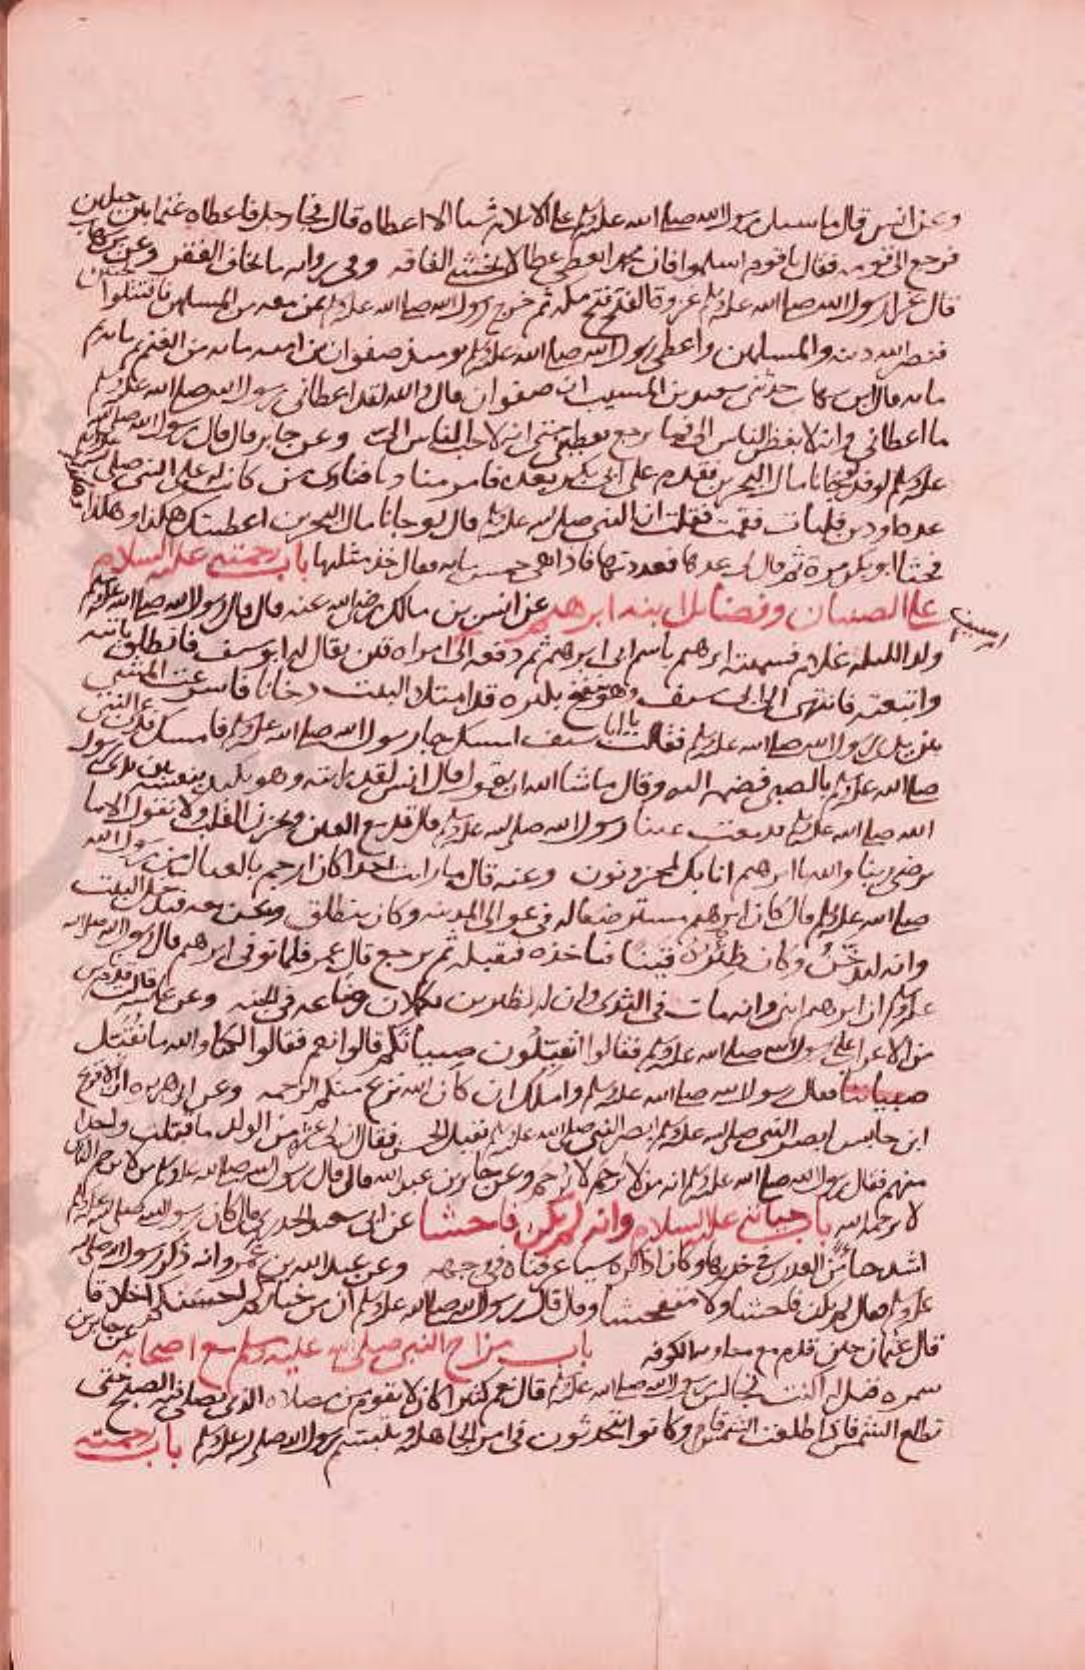 وعن انس قال ما سيل رسول الله صلى الله عليه وسلم على الاسلام شيا الا اعطاه قال فجا رجل فاعطاه غنما بين جبلين
فرجع الى قومه فقال يا قوم اسلموا فان محمدا يعطي عطا لا يخشى الفاقه وفي روايه ما يخاف الفقر وعن بن شهاب
قال غزا رسول الله صلى الله عليه وسلم غزوة الفتح فتح مكه ثم خرج رسول الله صلى الله عليه وسلم بمن معه من المسلمين فاقتتلوا بحنين
فنصر الله دينه والمسلمين واعطى رسول الله صلى الله عليه وسلم يوميذ صفوان بن اميه مايه من الغنم ثم مايه ثم
مايه قال ابن شهاب حدثني سعيد بن المسيب ان صفوان قال والله لقد اعطاني رسول الله صلى الله عليه وسلم
ما اعطاني وانه لابغض الناس الي فما برح يعطيني حتى انه لاحب الناس الي وعن جابر قال قال رسول الله صلى الله
عليه وسلم لو قد جانا مال البحرين فقدم على ابي بكر بعده فامر مناديا فنادى من كانت له على النبي صلى الله عليه وسلم
عده او دين فليات فقمت فقلت ان النبي صلى الله عليه وسلم قال لو جانا مال البحرين اعطيتك هكذا وهكذا وهكذا
فحثا ابو بكر مرة ثم قال لي عدها فعددتها فاذا هي خمس مايه فقال خذ مثليها باب رحمته عليه السلام
على الصبيان وفضايل ابنه ابرهيم عن انس بن مالك رضي الله عنه قال قال رسول الله صلى الله عليه وسلم
ولد الليلة غلام فسميته ابرهيم باسم ابي ابرهيم ثم دفعه الى امراه قين يقال له ابو سيف فانطلق ياتيه
واتبعته فانتهى الى ابي سيف وهو ينفخ بكيره قد امتلا البيت دخانا فاسرعت المشي
بين يدي رسول الله صلى الله عليه وسلم فقلت يا ابا سيف امسك جا رسول الله صلى الله عليه وسلم فامسك فدعا النبي
صلى الله عليه وسلم بالصبي فضمه اليه وقال ما شا الله ان يقول قال انس لقد رايته وهو يكيد بنفسه بين يدي رسول
الله صلى الله عليه وسلم فدمعت عينا رسول الله صلى الله عليه وسلم قال تدمع العين ويحزن القلب ولا نقول الا ما
يرضي ربنا والله يا ابرهيم انا بك لمحزونون وعنه قال ما رايت احدا كان ارحم بالعيال من رسول الله
صلى الله عليه وسلم قال كان ابرهيم مسترضعا له في عوالي المدينه وكان ينطلق ونحن معه فيدخل البيت
وانه ليدخن وكان ظئره قينا فياخذه فيقبله ثم يرجع قال عمر فلما توفي ابرهيم قال رسول الله صلى الله
عليه وسلم ان ابرهيم ابني وانه مات في الثدي وان له لظئرين تكملان رضاعه في الجنه وعن عايشه قالت قدم ناس
من الاعراب على رسول الله صلى الله عليه وسلم فقالوا اتقبلون صبيانكم قالوا نعم فقالوا لكنا والله ما نقبل
صبياننا فقال رسول الله صلى الله عليه وسلم واملك ان كان الله نزع منكم الرحمه وعن ابي هريره ان الاقرع
ابن حابس ابصر النبي صلى الله عليه وسلم يقبل الحسن فقال ان لي عشرة من الولد ما قبلت واحدا
منهم فقال رسول الله صلى الله عليه وسلم انه من لا يرحم لا يرحم وعن جابر بن عبد الله قال قال رسول الله صلى الله عليه وسلم من لا يرحم الناس
لا يرحمه الله باب حيائه عليه السلام وانه لم يكن فاحشا عن ابي سعيد الخدري قال كان رسول الله صلى الله عليه وسلم
اشد حيائا من العذرا في خدرها وكان اذا كره شيا عرفناه في وجهه وعن عبد الله بن عمرو انه ذكر رسول الله صلى الله
عليه وسلم فقال لم يكن فاحشا ولا متفحشا وقال قال رسول الله صلى الله عليه وسلم ان من خياركم احسنكم اخلاقا
قال عثمان حين قدم مع معاويه الكوفه باب مزاح النبي صلى الله عليه وسلم مع اصحابه عن جابر بن
سمره قيل له اكنت تجالس رسول الله صلى الله عليه وسلم قال نعم كثيرا كان لا يقوم من مصلاه الذي يصلي فيه الصبح حتى
تطلع الشمس فاذا طلعت الشمس قام وكانوا يتحدثون في امر الجاهليه ويتبسم رسول الله صلى الله عليه وسلم باب رحمته